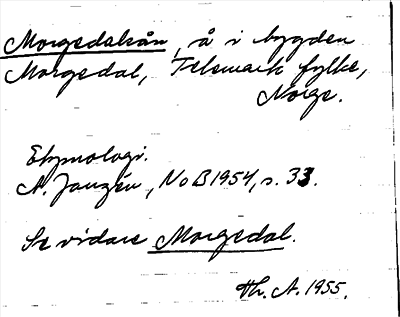 Morgedalsån, å i bygden
Morgedal, Telemark fylke,
Norge.
Etymologi.
A. Janzén, NoB 1954, s. 33.
Se vidare Morgedal.
Th. A. 1955.